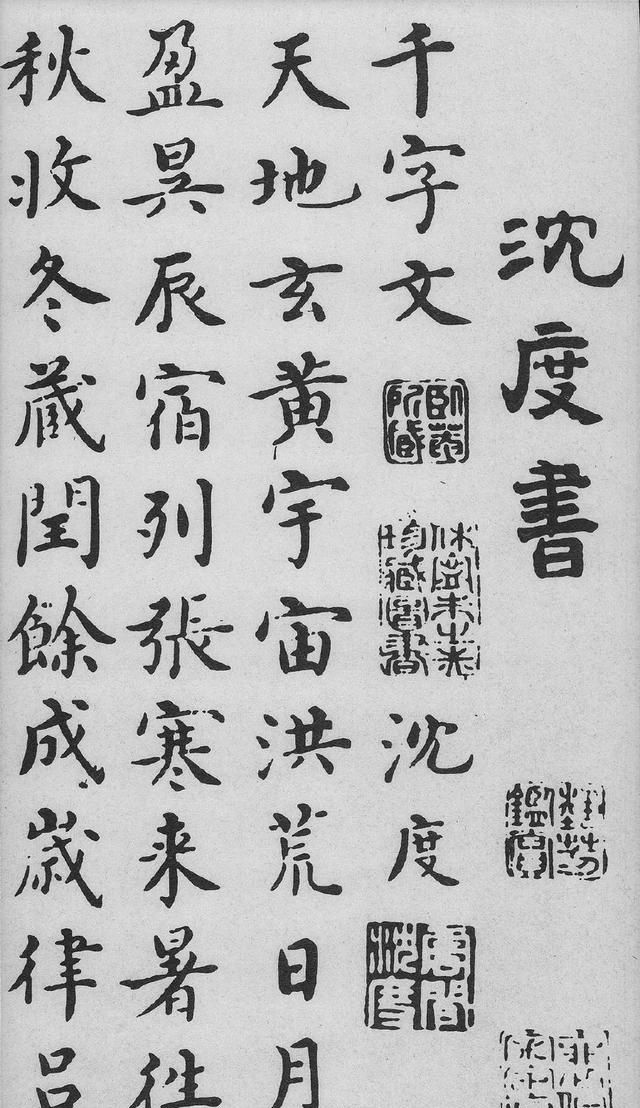 沈度書
千字文
沈度
天地玄黃宇宙洪荒日月
盈昃辰宿列張寒来暑往
秋收冬藏閏餘成歲律吕